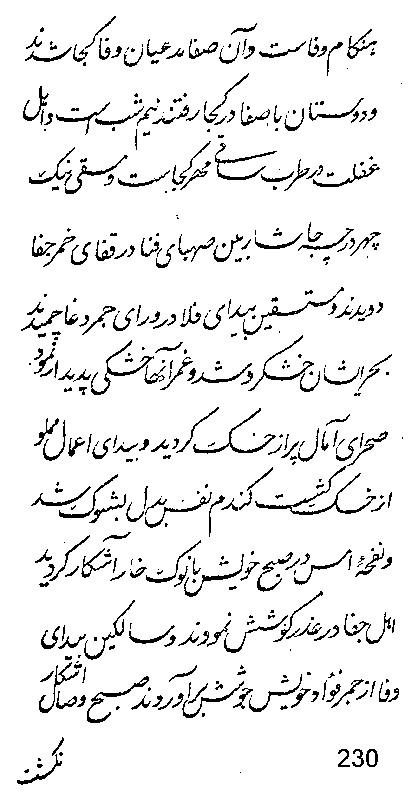 هنگام وفاست و آن صفا مدعیان وفا کجا شدند
و دوستان با صفا در کجا رفتند نیم شب است و اهل
غفلت در طرب ساقی مهر کجاست و مسقی نیک
چهر در چه جا شاربین صهبای فنا در قفای خمر جفا
دویدند و مستسقین بیدای فلا در ورای جمر دغا چمیدند
بحرایشان خشک شد و غمر آنها خشکی پدیدار نمود
صحرای آمال پر از خسک گردید و بیدای اعمال مملو
از خسک گشت گندم نفس بدل بشوک شد
و نفحهٔ انس در صبح خویش با نوک خار آشکار گردید
اهل جفا در عذر کوشش نمودند و سالکین بیدای
وفا از جمر فؤاد خویش جوشش برآوردند صبح وصال آشکار
نگشت
230